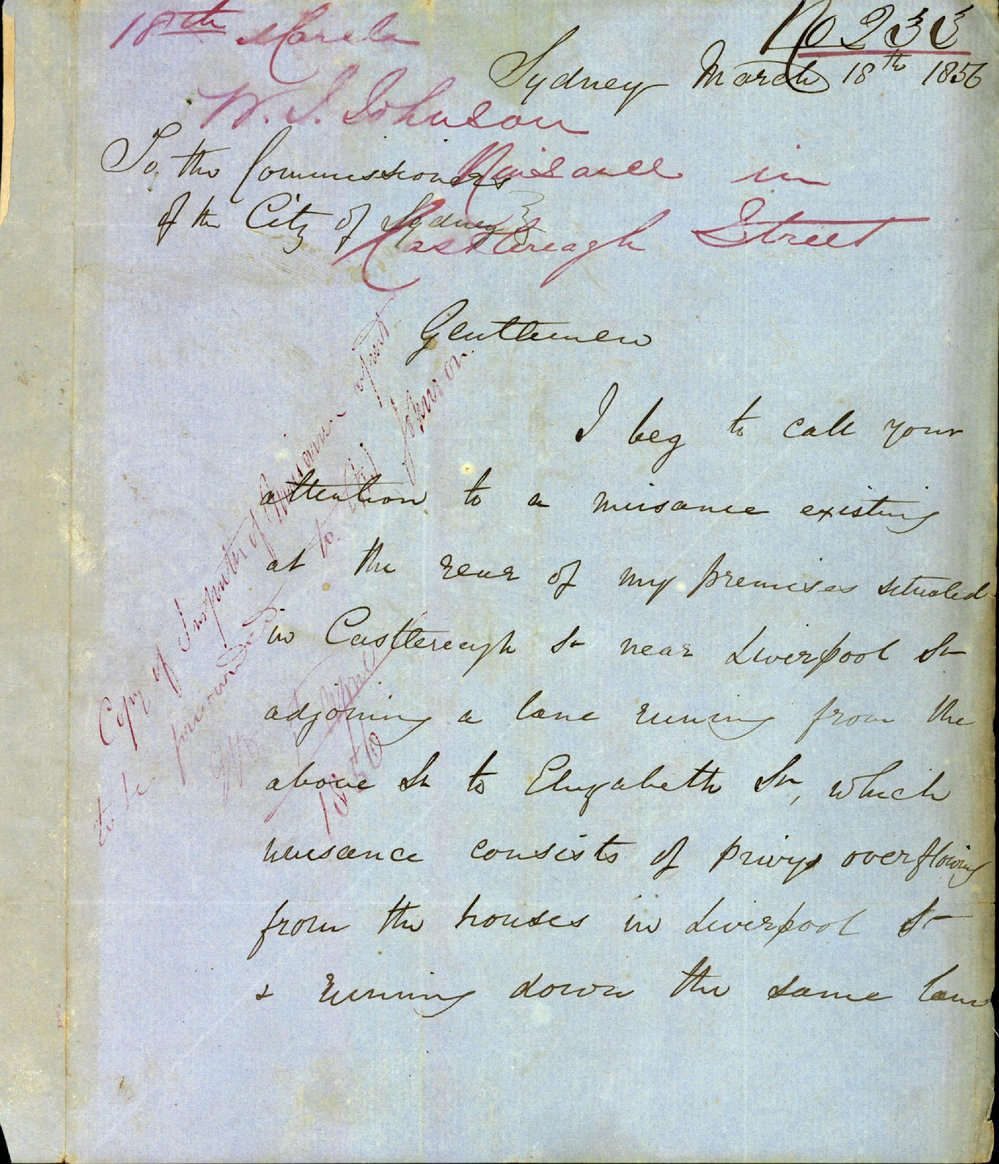 No 233
18th March
Sydney March 18th 1856
W. S. Johnson
To the Commissioners
Nuisance in
of the City of Sydney
Castlereagh Street
Gentlemen
I beg to call your
attention to a nuisance existing
at the rear of my premises situated
in Castlereagh St near Liverpool St
adjoining a lane running from the
above St to Elizabeth St, which
nuisance consists of privys overflowing
from the houses in Liverpool St
& running down the same lane
Copy of Inspector of Nuisance report
to be forwarded to Johnson.
April
1856